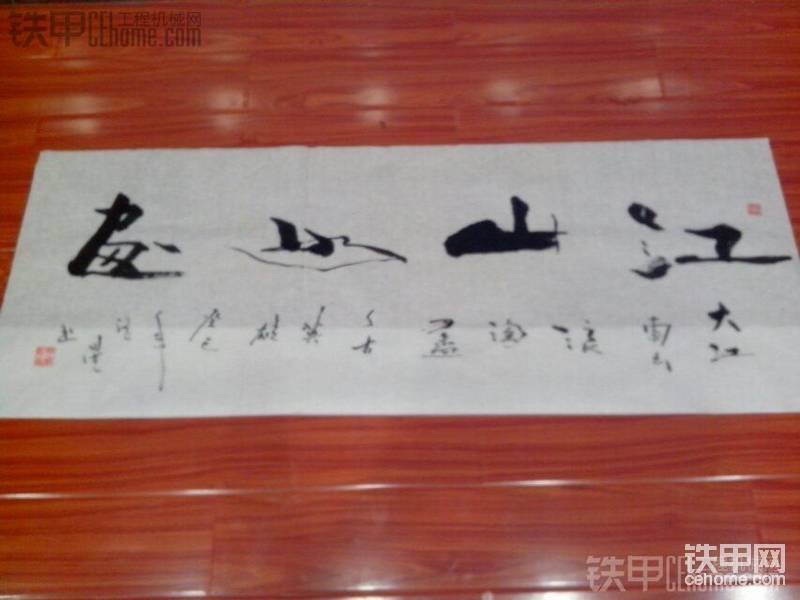 铁甲工程机械网
CEhome.com
江山如画
大江
东去
浪
淘
尽
千古
英
雄
癸巳
年
书
铁甲
铁甲网
cehome.com